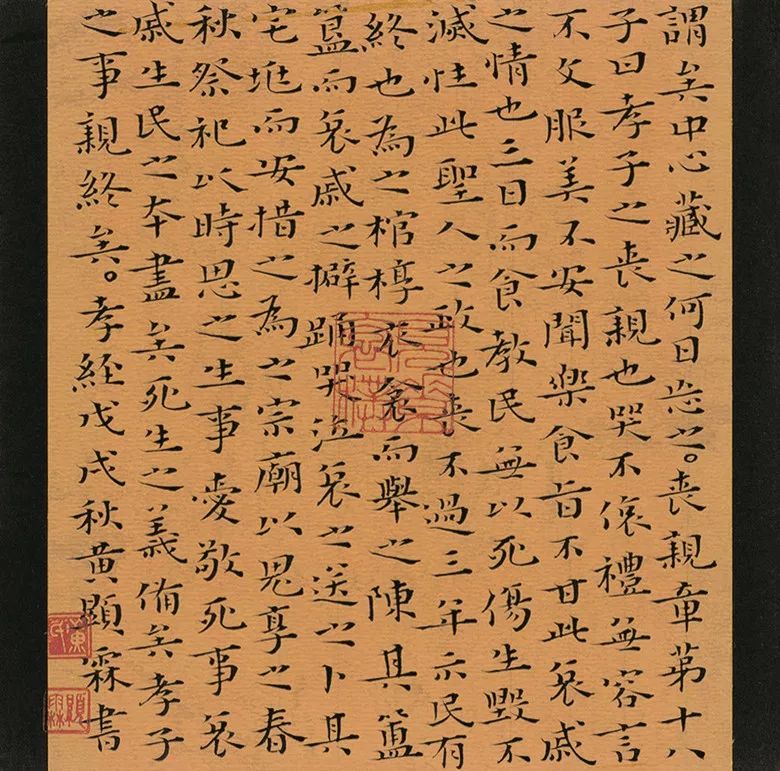 謂矣中心藏之何日忘之。喪親章第十八
子曰孝子之喪親也哭不偯禮無容言
不文服美不安聞樂食旨不甘此哀戚
之情也三日而食教民無以死傷生毀不
滅性此聖人之政也喪不過三年示民有
終也為之棺椁衣衾而舉之陳其簠
簋而哀戚之擗踊哭泣哀以送之卜其
宅垗而安措之為之宗廟以鬼享之春
秋祭祀以時思之生事愛敬死事哀
戚生民之本盡矣死生之義備矣孝子
之事親終矣。孝經戊戌秋黃顯霖書
顯霖